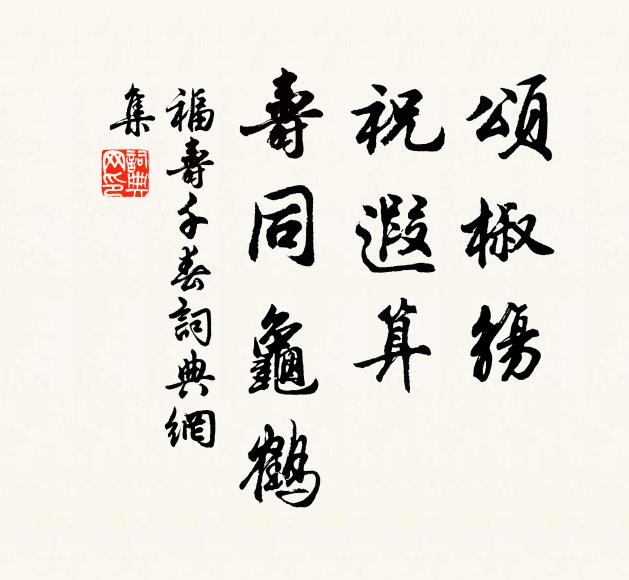 頌椒觴
祝遐算
壽同龜鶴
福壽千春詞典網
集
詞典
网印